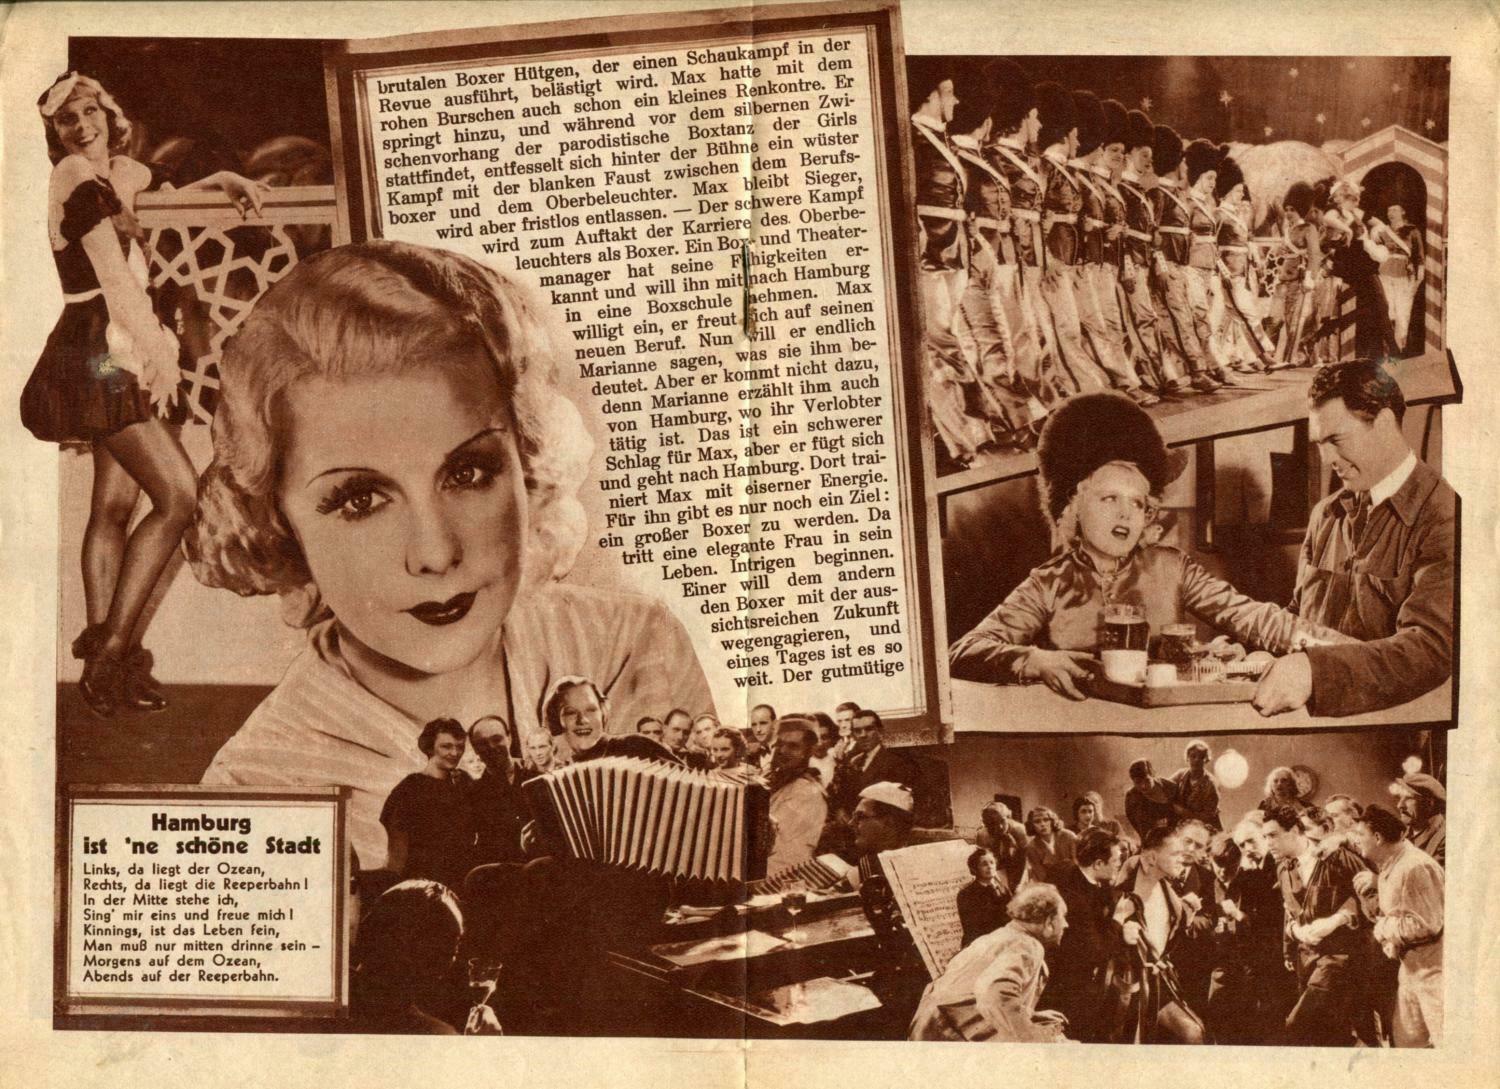 brutalen Boxer Hütgen, der einen Schaukampf in der
Revue ausführt, belästigt wird. Max hatte mit dem
rohen Burschen auch schon ein kleines Renkontre. Er
springt hinzu, und während vor dem silbernen Zwi-
schenvorhang der parodistische Boxtanz der Girls
stattfindet, entfesselt sich hinter der Bühne ein wüster
Kampf mit der blanken Faust zwischen dem Berufs-
boxer und dem Oberbeleuchter. Max bleibt Sieger,
wird aber fristlos entlassen. — Der schwere Kampf
wird zum Auftakt der Karriere des Oberbe-
leuchters als Boxer. Ein Box- und Theater-
manager hat seine Fähigkeiten er-
kannt und will ihn mit nach Hamburg
in eine Boxschule nehmen. Max
willigt ein, er freut sich auf seinen
neuen Beruf. Nun will er endlich
Marianne sagen, was sie ihm be-
deutet. Aber er kommt nicht dazu,
denn Marianne erzählt ihm auch
von Hamburg, wo ihr Verlobter
tätig ist. Das ist ein schwerer
Schlag für Max, aber er fügt sich
und geht nach Hamburg. Dort trai-
niert Max mit eiserner Energie.
Für ihn gibt es nur noch ein Ziel:
ein großer Boxer zu werden. Da
tritt eine elegante Frau in sein
Leben. Intrigen beginnen.
Einer will dem andern
den Boxer mit der aus-
sichtsreichen Zukunft
wegengagieren, und
eines Tages ist es so
weit. Der gutmütige
Hamburg
ist 'ne schöne Stadt
Links, da liegt der Ozean,
Rechts, da liegt die Reeperbahn!
In der Mitte stehe ich,
Sing' mir eins und freue mich!
Kinnings, ist das Leben fein,
Man muß nur mitten drinne sein –
Morgens auf dem Ozean,
Abends auf der Reeperbahn.